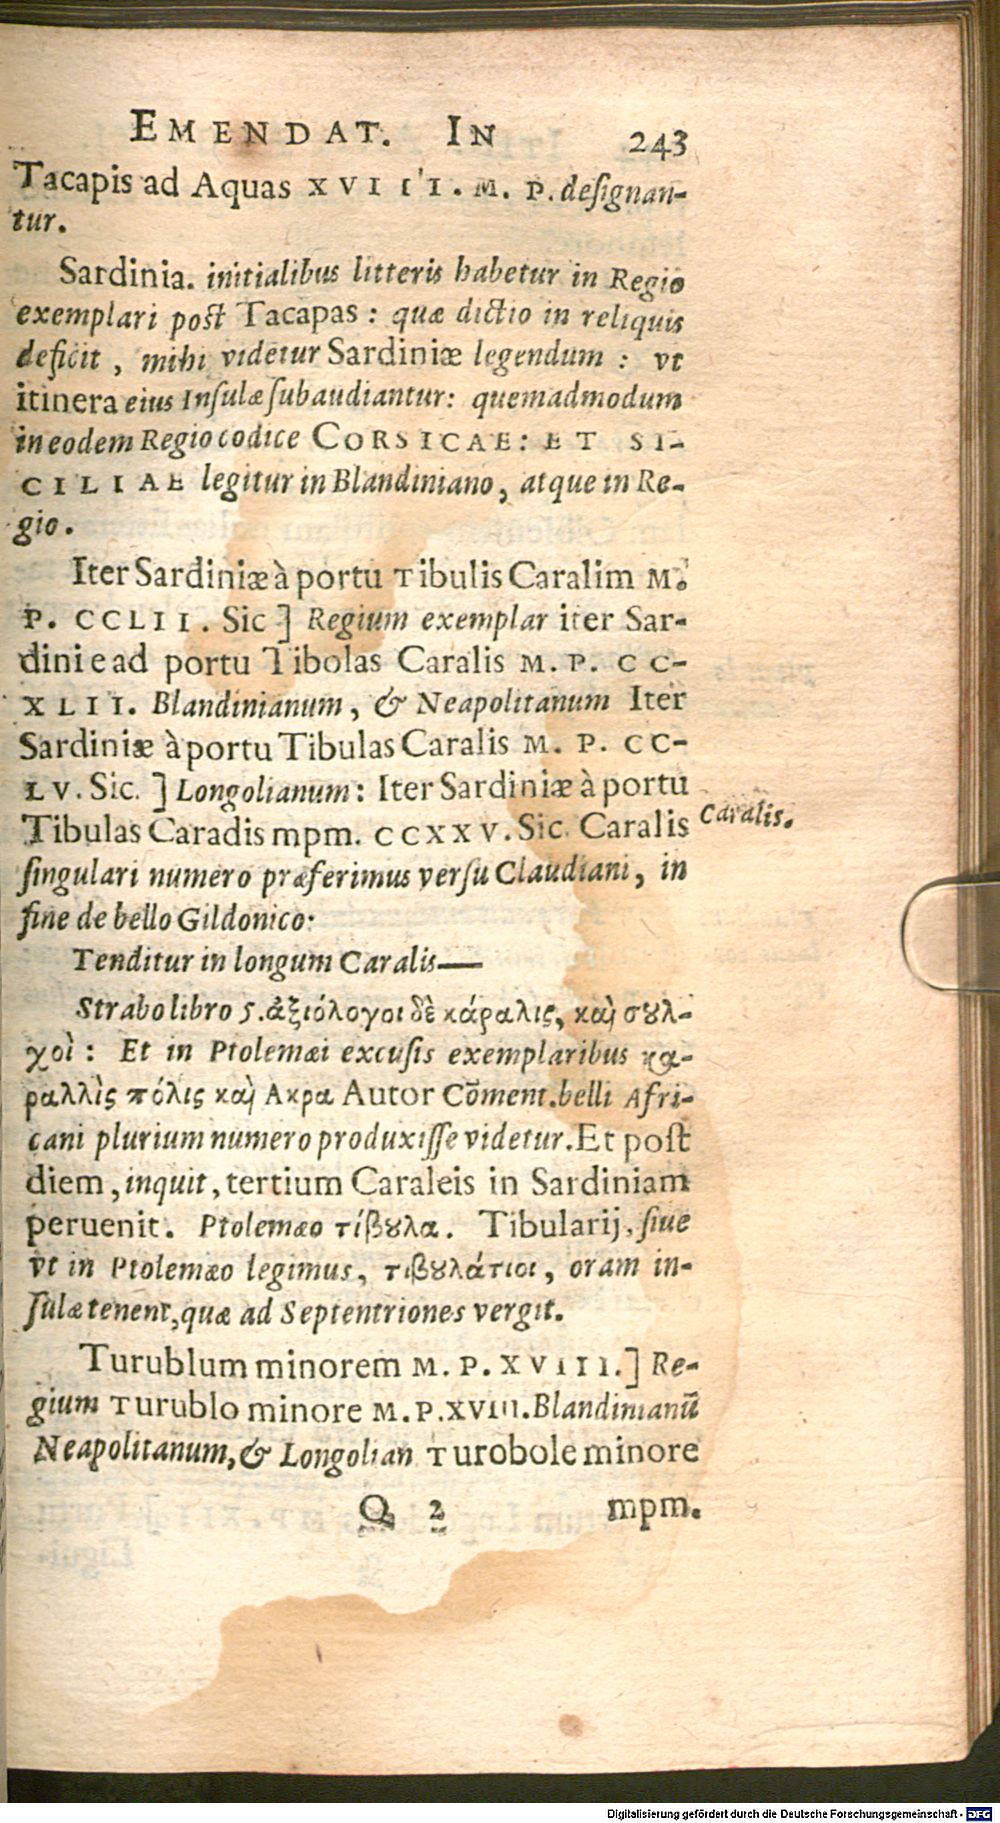 EMENDAT. IN 243
Tacapis ad Aquas XVIII. M. P. deſignan-
tur.
Sardinia. initialibus litteris habetur in Regio
exemplari poſt Tacapas: quæ dictio in reliquis
deficit, mihi videtur Sardiniæ legendum: vt
itinera eius Inſulæ ſubaudiantur: quemadmodum
in eodem Regio codice CORSICAE: ET SI-
CILIAE legitur in Blandiniano, atque in Re-
gio.
Iter Sardiniæ à portu Tibulis Caralim M.
P. CCLII. Sic] Regium exemplar iter Sar-
dinie ad portu Tibolas Caralis M. P. CC-
XLII. Blandinianum, & Neapolitanum Iter
Sardiniæ à portu Tibulas Caralis M. P. CC-
LV. Sic.] Longolianum: Iter Sardiniæ à portu
Tibulas Caradis mpm. CCXXV. Sic. Caralis
Caralis.
ſingulari numero præferimus verſu Claudiani, in
fine de bello Gildonico:
Tenditur in longum Caralis—
Strabo libro 5. ἀξιόλογοι δὲ κάραλις, καὶ σουλ-
χοὶ: Et in Ptolemæi excuſis exemplaribus κα-
ραλλὶς πόλις καὶ Ακρα Autor Cōment. belli Afri-
cani plurium numero produxiſſe videtur. Et poſt
diem, inquit, tertium Caraleis in Sardiniam
peruenit. Ptolemæo τίβουλα. Tibularij, ſiue
vt in Ptolemæo legimus, τιβουλάτιοι, oram in-
ſulæ tenent, quæ ad Septentriones vergit.
Turublum minorem M. P. XVIII.] Re-
gium Turublo minore M. P. XVIII. Blandinianū
Neapolitanum, & Longolian Turobole minore
Q 2 mpm.
Digitalisierung gefördert durch die Deutsche Forschungsgemeinschaft - DFG